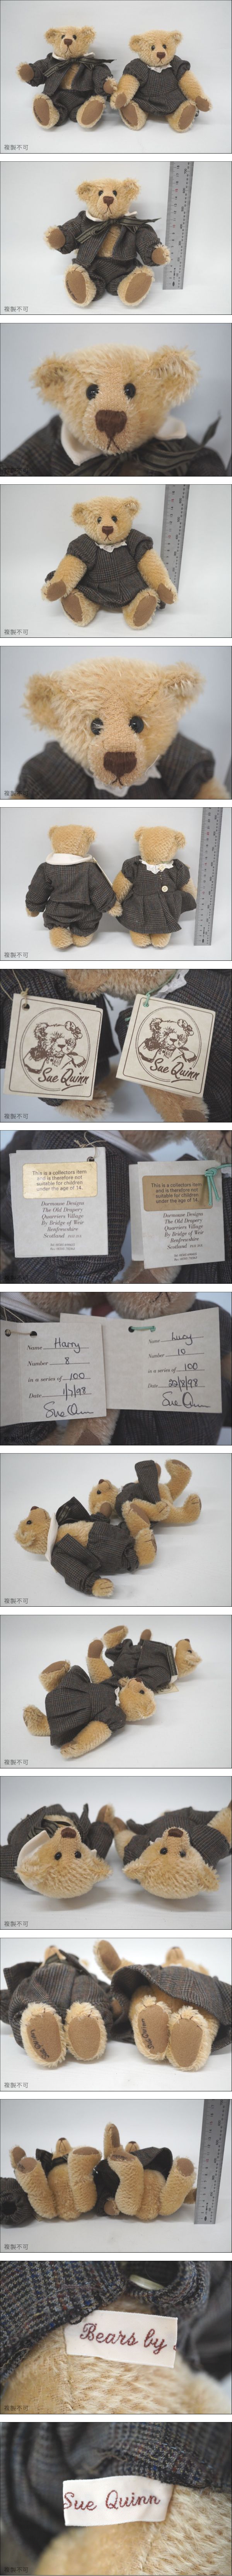 複製不可
複製不可
複製不可
複製不可
複製不可
複製不可
Sue Quinn
Sue Quinn
This is a collectors item
and is therefore not
suitable for children
under the age of 14.
Dormouse Designs
The Old Drapery
Quarriers Village
By Bridge of Weir
Renfrewshire
Scotland
This is a collectors item
and is therefore not
suitable for children
under the age of 14.
Dormouse Designs
The Old Drapery
Quarriers Village
By Bridge of Weir
Renfrewshire
Scotland
Name Harry
Number 8
in a series of 100
Date 1/7/98
Sue Quinn
Name Lucy
Number 10
in a series of 100
Date 22/8/98
Sue Quinn
複製不可
複製不可
複製不可
複製不可
複製不可
Bears by
複製不可
Sue Quinn
複製不可